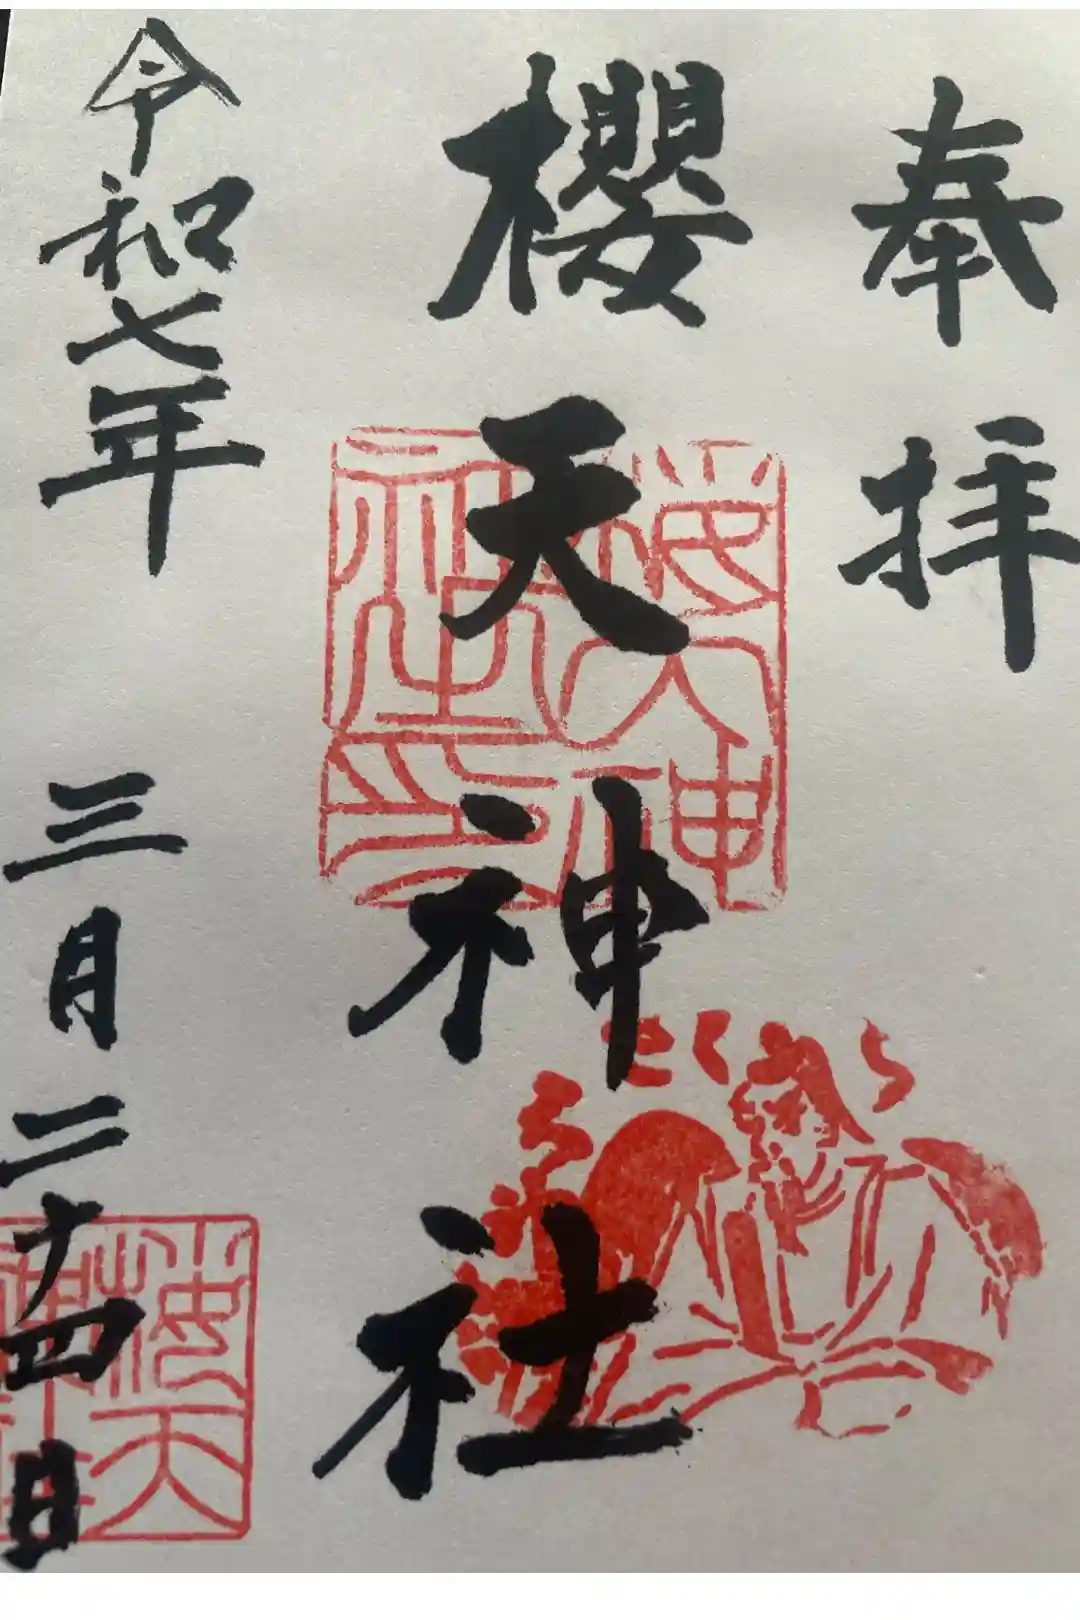 奉拝
櫻天神社
令和七年 三月二十四日
桜天神社印
桜天神社